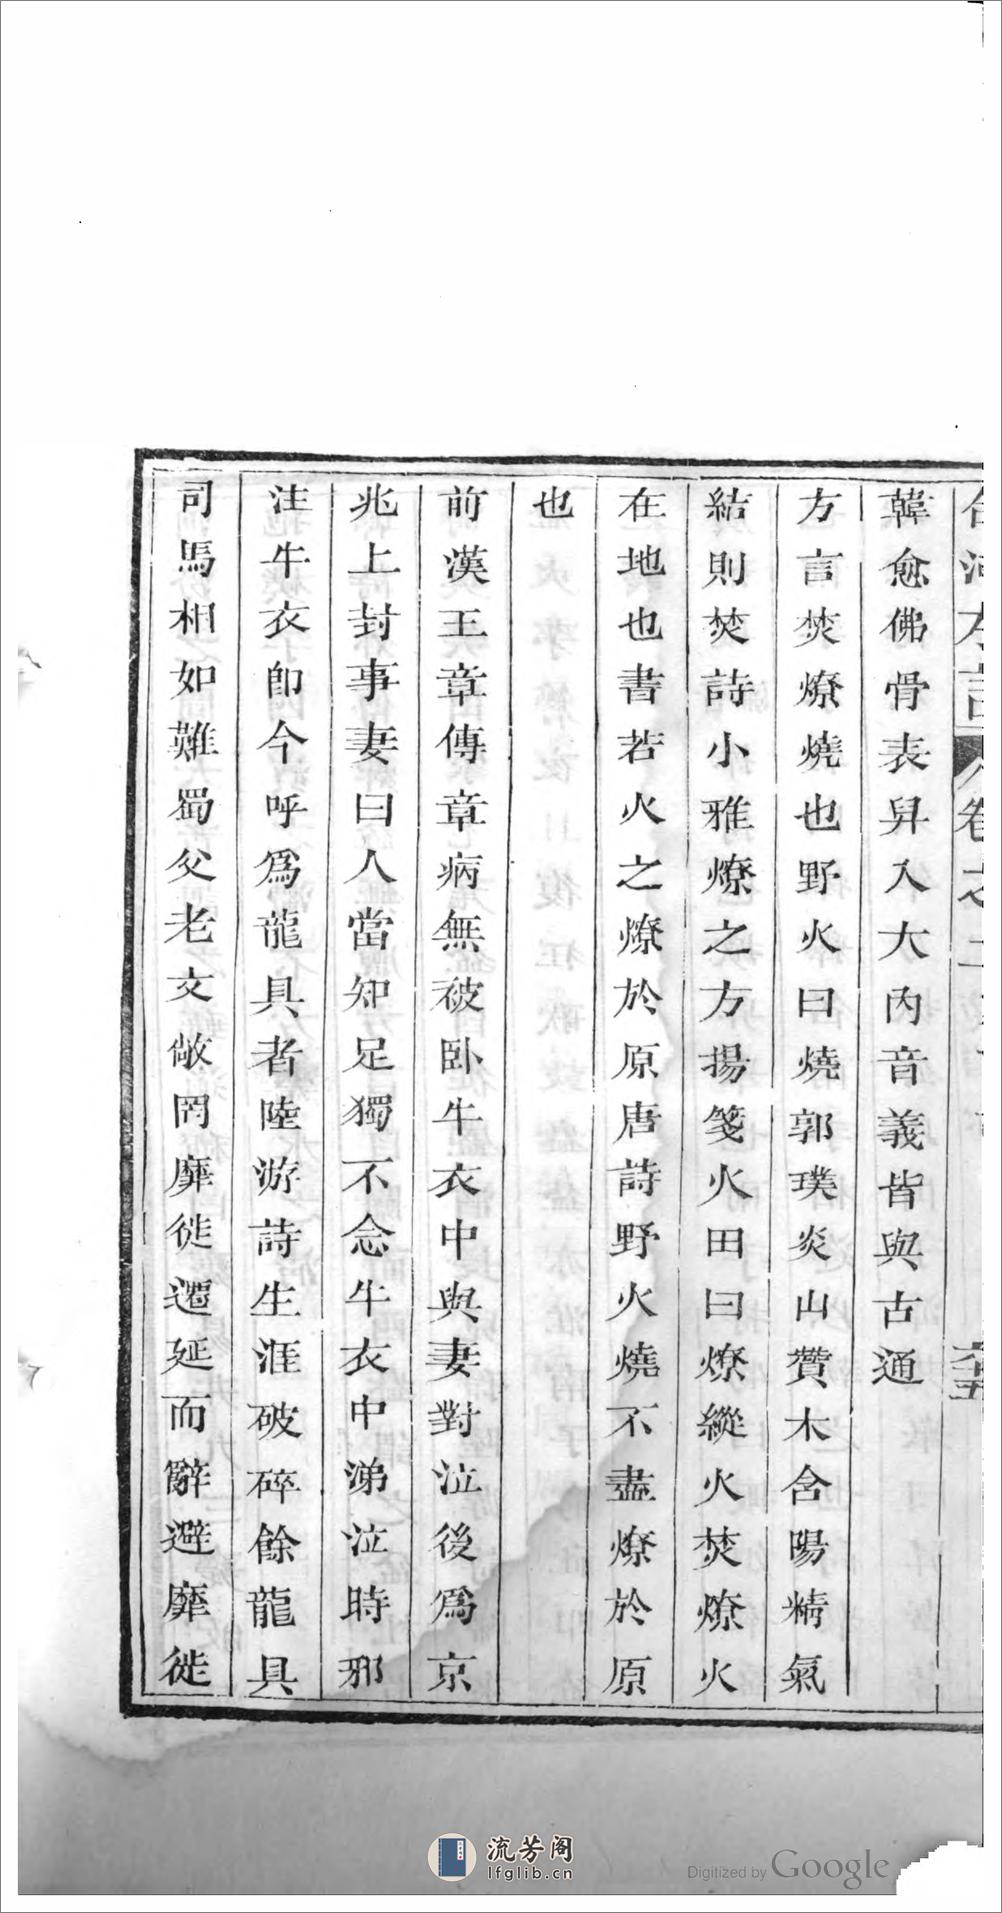 韓愈佛骨表舁入大內音義皆與古通
方言焚燎燒也野火曰燒郭璞炎山贊木含陽精氣
結則焚詩小雅燎之方揚箋火田曰燎縱火焚燎火
在地也書若火之燎於原唐詩野火燒不盡燎於原
也
前漢王章傳章病無被卧牛衣中與妻對泣後爲京
兆上封事妻曰人當知足獨不念牛衣中涕泣時邪
注牛衣卽今呼爲龍具者陸游詩生涯破碎餘龍具
司馬相如難蜀父老文敞罔靡徙遷延而辭避靡徙
卷之
流芳阁
lfglib.cn
Digitized by Google